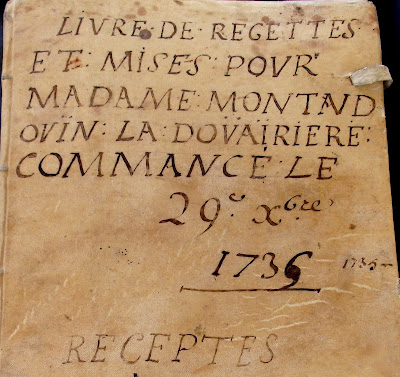 LIVRE·DE·RECETTES
ET·MISES·POVR
MADAME·MONTAVD
OVÏN: LA·DOVAÏRIERE:
COMMANCE·LE
29.e xbre
1735 1735
RECEPTES